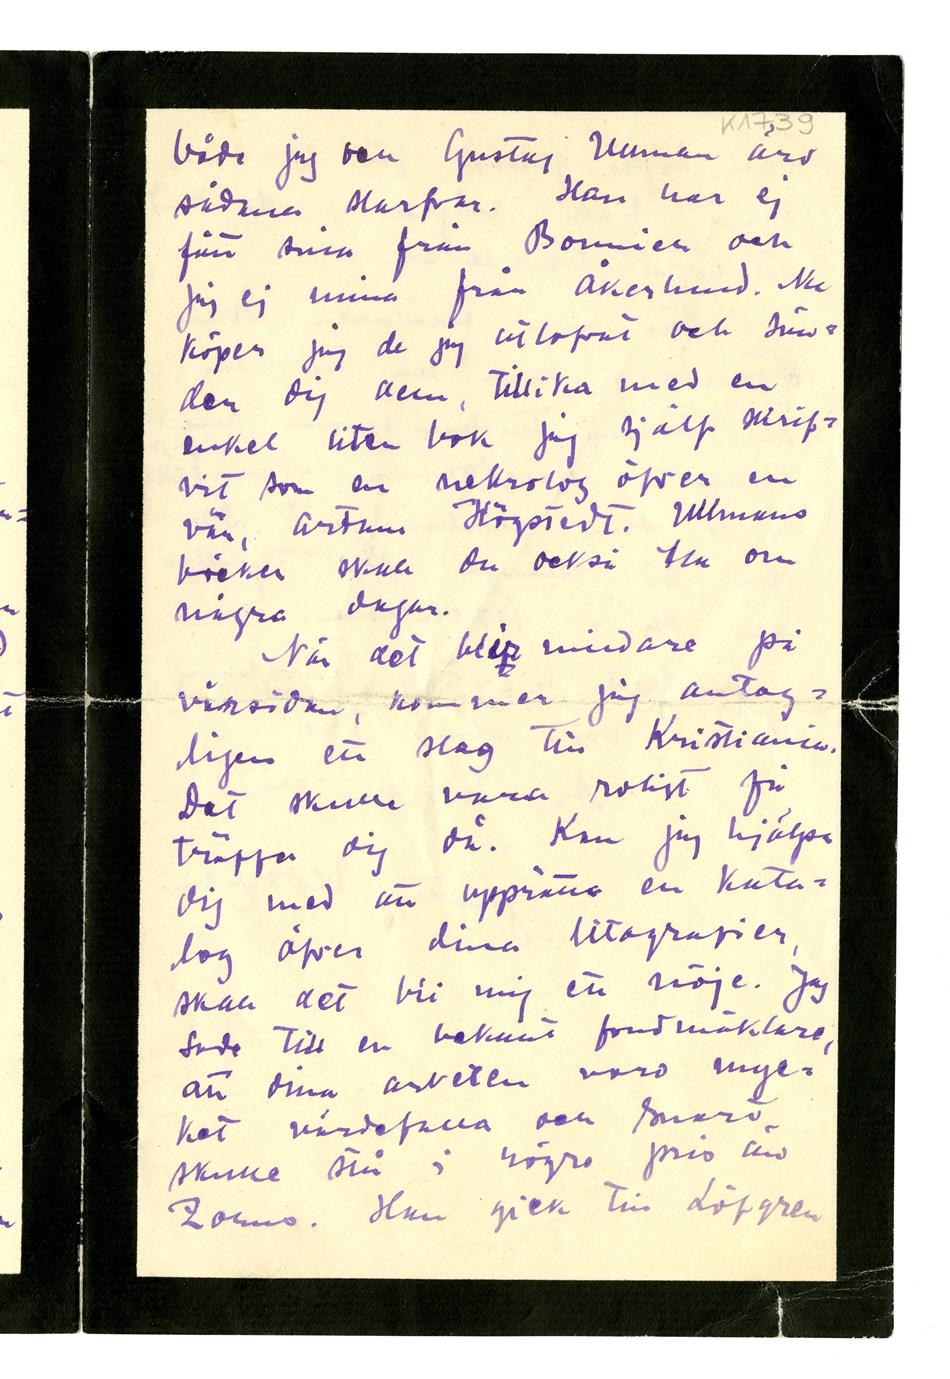 K1739
både jag och Gustaf Ullman äro
sådana slarfvar. Han har ej
fått sina från Bonnier och
jag ej mina från Åkerlund. Nu
köper jag de jag utlofvat och sän=
der dig dem, tillika med en
enkel liten bok jag sjålf skrif=
vit som en nekrolog öfver en
vän, Högstedt. Ullmans
böcker skall du också ha om
några dagar.
När det blir mildare på
vårsidan, kommer jag antag=
ligen ett slag till Kristiania.
Det skulle vara roligt få
träffa dig då. Kan jag hjälpa
dig med att upprätta en kata=
log öfver dina litografier,
skall det bli mig ett nöje. Jag
sade till en bekant fondmäklare,
att dina arbeten voro myc=
ket värdefulla och snart
skulle stå i högre pris än
Zorns. Han gick till Löfgren